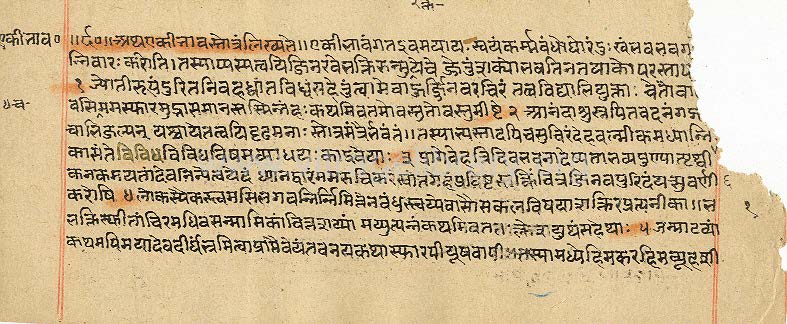 एकीभाव० ॥५०॥ अथ एकीभावस्तोत्रं लिख्यते ॥ एकीभावंगतइवमयायः स्वयंकर्म्मबंधोघोरंदुःखंभवभवग
न्निवारः करोति । तस्याप्यस्यत्वयिजिनरवेभक्तिरुन्मुक्तयेचेज्जेतुंशक्योभवतिनतयाकोपरस्ताप
१ ज्योतीरूपंदुरितनिवहध्वांतविध्वंसहेतुंत्वामेवाहुर्ज्जिनवरचिरंतत्वविद्याभियुक्ताः । चेतोवा
वसिममस्फारमुद्भासमानस्तस्मिन्नंहः कथमिवतमोवस्तुतोवस्तुमीष्टे २ आनंदाश्रुस्नपितवदनंग
चाभिजल्पन् यश्चायेतत्वयिदृढमनाः स्तोत्रमंत्रैर्भवंतं ॥ तस्याभ्यस्तादपिचसुचिरंदेहवल्मीकमध्यान्नि
कासंते विविधविविधविषमव्याधयः काद्रवेयाः ३ प्रागेवेहत्रिदिवभवनादेष्यताभव्यपुण्यात्पृथ्वी
कनकमयतांदेवनिन्येत्वयेदं ध्यानद्वारंममरुचिकरंस्वांतगेहंप्रविष्टस्तत्किंचित्रंजिनवपुरिदंयत्सुवर्णी
करोषि ४ लोकस्यैकस्त्वमसिभगवन्निर्निमित्तेनबंधुस्त्वय्येवासौसकलविषयाशक्तिरप्रत्यनीका ॥ भ १
क्तिस्फीतांचिरमधिवसन्मामिकांचित्तशय्यां मय्युत्पन्नंकथमिवततः क्लेशयूथंसहेथाः ५ जन्माटव्यां
कथमपिमयादेवदीर्घंभ्रमित्वाप्राप्तैवेयंतवनयकथास्फारपीयूषवापी तस्यामध्येहिमकरहिमव्यूहशी